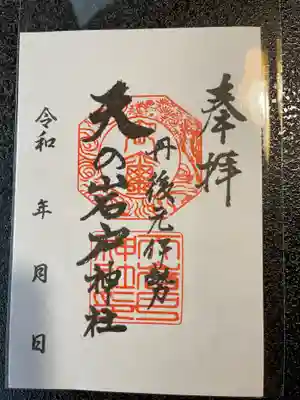 奉拝
丹後元伊勢
天の岩戸神社
令和 年 月 日